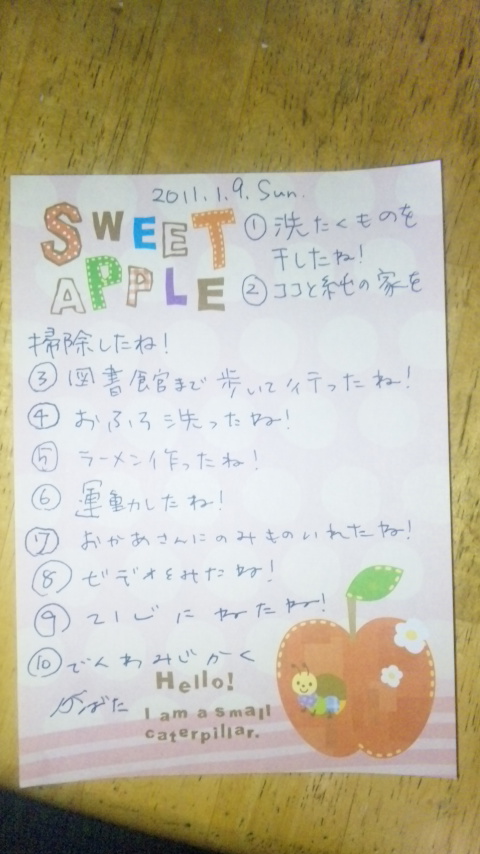 2011.1.9. Sun.
SWEET
APPLE
① 洗たくものを
干したね!
② ココと純の家を
掃除したね!
③ 図書館まで歩いて行ったね!
④ おふろ洗ったね!
⑤ ラーメン作ったね!
⑥ 運動したね!
⑦ おかあさんにのみものいれたね!
⑧ ビデオをみたね!
⑨ 2じにねたね!
⑩ でんわみじかく
がばた
Hello!
I am a small
caterpillar.